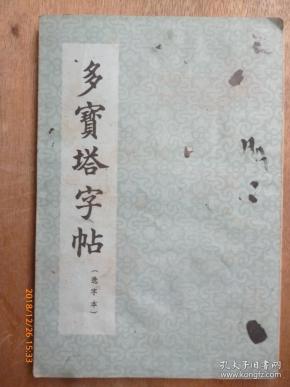 多寶塔字帖
(选字本)
2018/12/26 15:33
孔夫子旧书网